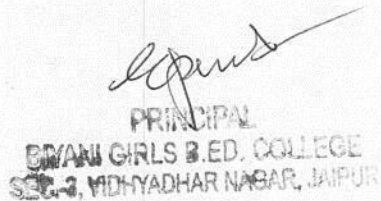 PRINCIPAL
BIYANI GIRLS B.ED. COLLEGE
SEC-3, VIDHYADHAR NAGAR, JAIPUR